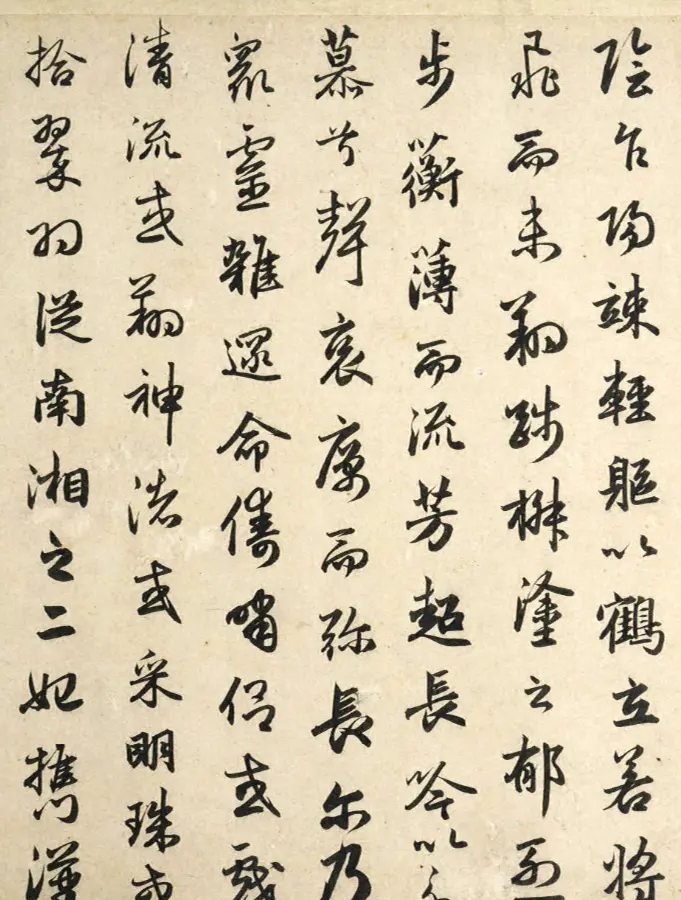 陰乍陽竦輕軀以鶴立若將
飛而未翔踐椒塗之郁烈
步蘅薄而流芳超長吟以永
慕兮聲哀厲而弥長尔乃
衆靈雜遝命儔嘯侶或戲
清流或翔神渚或采明珠或
拾翠羽從南湘之二妃攜漢